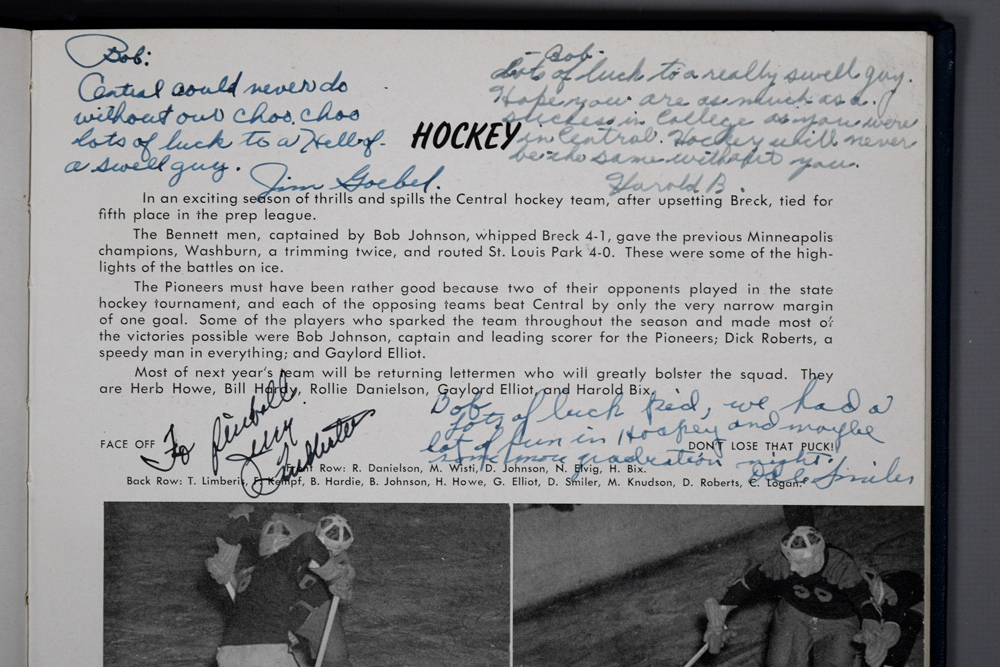 Bob:
Central could never do
without our choo choo
lots of luck to a Hell of
a swell guy.
Jim Goebel.
Bob-
Lots of luck to a really swell guy.
Hope you are as much as a
in College as you were
in Central. Hockey will never
be the same without you.
Harold B.
HOCKEY
In an exciting season of thrills and spills the Central hockey team, after upsetting Breck, tied for
fifth place in the prep league.
The Bennett men, captained by Bob Johnson, whipped Breck 4-1, gave the previous Minneapolis
champions, Washburn, a trimming twice, and routed St. Louis Park 4-0. These were some of the high-
lights of the battles on ice.
The Pioneers must have been rather good because two of their opponents played in the state
hockey tournament, and each of the opposing teams beat Central by only the very narrow margin
of one goal. Some of the players who sparked the team throughout the season and made most of
the victories possible were Bob Johnson, captain and leading scorer for the Pioneers; Dick Roberts, a
speedy man in everything; and Gaylord Elliot.
Most of next year's team will be returning lettermen who will greatly bolster the squad. They
are Herb Howe, Bill Hardy, Rollie Danielson, Gaylord Elliot and Harold Bix.
To
Bob
Lots of luck kid, we had a
lot of fun in Hockey and maybe
some more graduation night.
Smiler
FACE OFF
DON'T LOSE THAT PUCK!
Front Row: R. Danielson, M. Wisti, D. Johnson, N. Elvig, H. Bix.
Back Row: T. Limberis, F. Kempf, B. Hardie, B. Johnson, H. Howe, G. Elliot, D. Smiler, M. Knudson, D. Roberts, C. Logan.